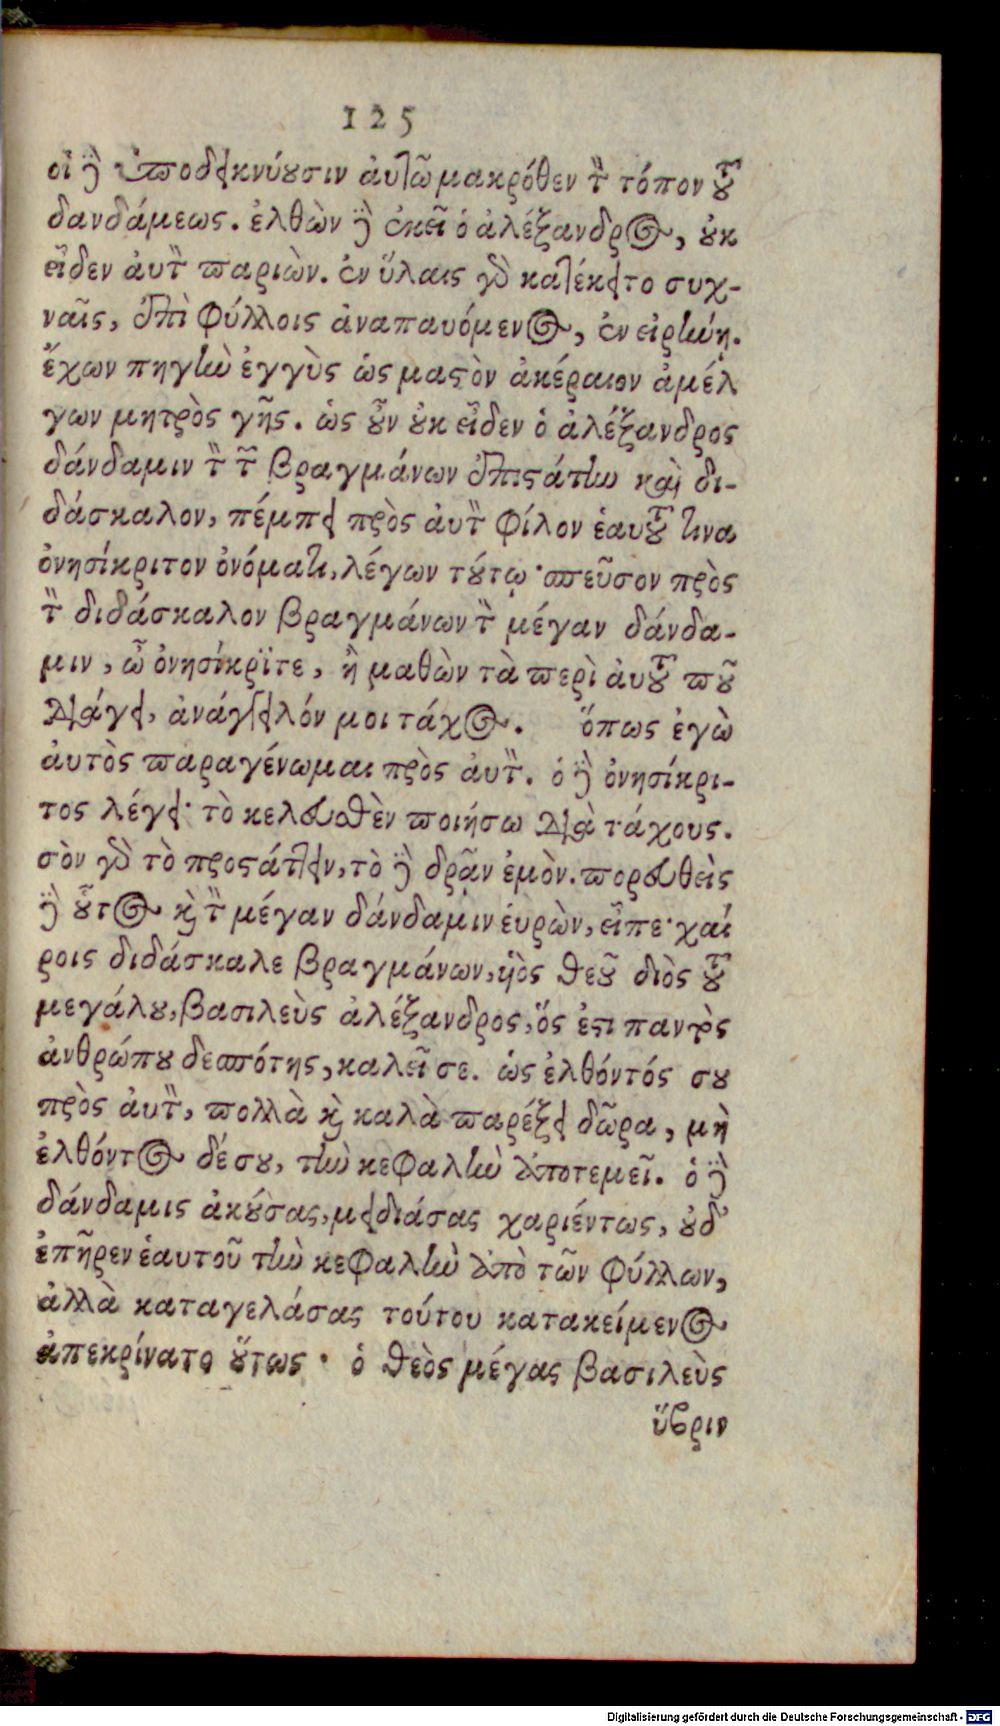 125
οἱ δὲ ὑποδεικνύουσιν αὐτῷ μακρόθεν τὸν τόπον τοῦ
δανδάμεως. ἐλθὼν δὲ ἐκεῖ ὁ ἀλέξανδρος, οὐκ
εἶδεν αὐτὸν παριὼν. ἐν ὕλαις γὰρ κατέκειτο συχ-
ναῖς, ἐπὶ φύλλοις ἀναπαυόμενος, ἐν εἰρήνη.
ἔχων πηγὴν ἐγγὺς ὡς μαστὸν ἀκέραιον ἀμέλ
γων μητρὸς γῆς. ὡς οὖν οὐκ εἶδεν ὁ ἀλέξανδρος
δάνδαμιν τὸν τῶν βραγμάνων ἐπιστάτην καὶ δι-
δάσκαλον, πέμπει πρὸς αὐτὸν φίλον ἑαυτοῦ τινα
ὀνησίκριτον ὀνόματι, λέγων τούτῳ· σπεῦσον πρὸς
τὸν διδάσκαλον βραγμάνων τὸν μέγαν δάνδα-
μιν, ὦ ὀνησίκριτε, ἢ μαθὼν τὰ περὶ αὐτοῦ ποῦ
διάγει, ἀνάγγειλόν μοι τάχος. ὅπως ἐγὼ
αὐτὸς παραγένωμαι πρὸς αὐτόν. ὁ δὲ ὀνησίκρι-
τος λέγει· τὸ κελευσθὲν ποιήσω διὰ τάχους.
σὸν γὰρ τὸ προστάττειν, τὸ δὲ δρᾷν ἐμὸν. πορευθεὶς
δὲ οὗτος καὶ τὸν μέγαν δάνδαμιν εὑρὼν, εἶπε· χαί
ροις διδάσκαλε βραγμάνων, υἱὸς θεοῦ διὸς τοῦ
μεγάλου, βασιλεὺς ἀλέξανδρος, ὅς ἐστι παντὸς
ἀνθρώπου δεσπότης, καλεῖ σε. ὡς ἐλθόντός σου
πρὸς αὐτὸν, πολλὰ καὶ καλὰ παρέξει δῶρα, μὴ
ἐλθόντος δέ σου, τὴν κεφαλὴν ἀποτεμεῖ. ὁ δὲ
δάνδαμις ἀκούσας, μειδιάσας χαριέντως, οὐδ'
ἐπῆρεν ἑαυτοῦ τὴν κεφαλὴν ἀπὸ τῶν φύλλων,
ἀλλὰ καταγελάσας τούτου κατακείμενος
ἀπεκρίνατο οὕτως· ὁ θεὸς μέγας βασιλεὺς
ὕβριν
Digitalisierung gefördert durch die Deutsche Forschungsgemeinschaft - DFG